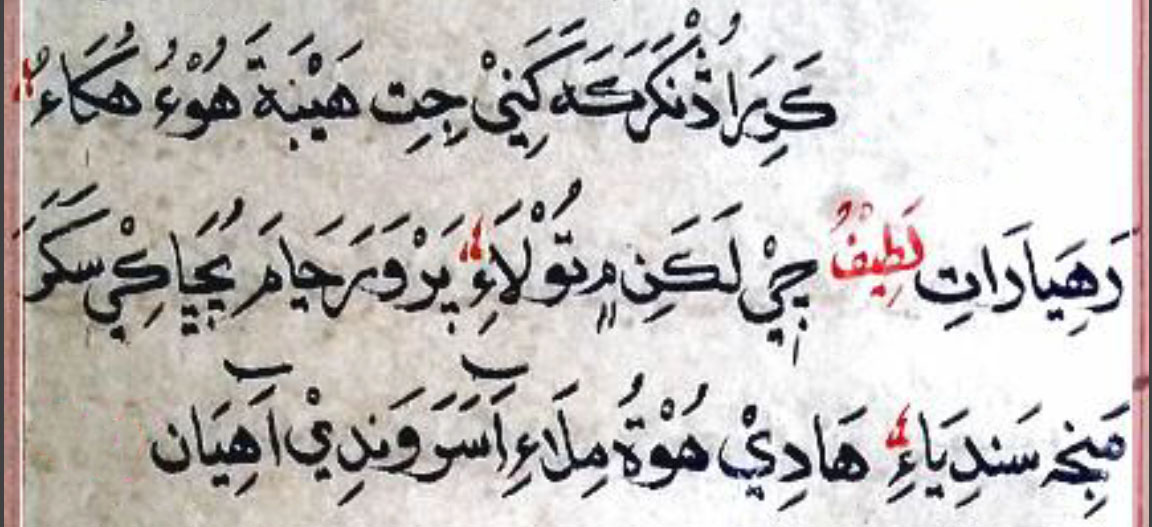 كَرِيَرَا ڏُنْكَرَكَہ كَنِيْ جِتِ هَيْبَةَ هُوْءُ هَكَاءُ
رَهِيَا رَاتِ لَطِيْفُ چِيْ لَكَنِ ۾ تُوْلَاءِ پَرْوَرَ جَامَ پُڄَاكِيْ سَكَرَ
مَنجِہ سَندِيَاءِ هَادِيْ هُوْةُ مِلَاءِ آسَرَوَندِيْ آهِيَان